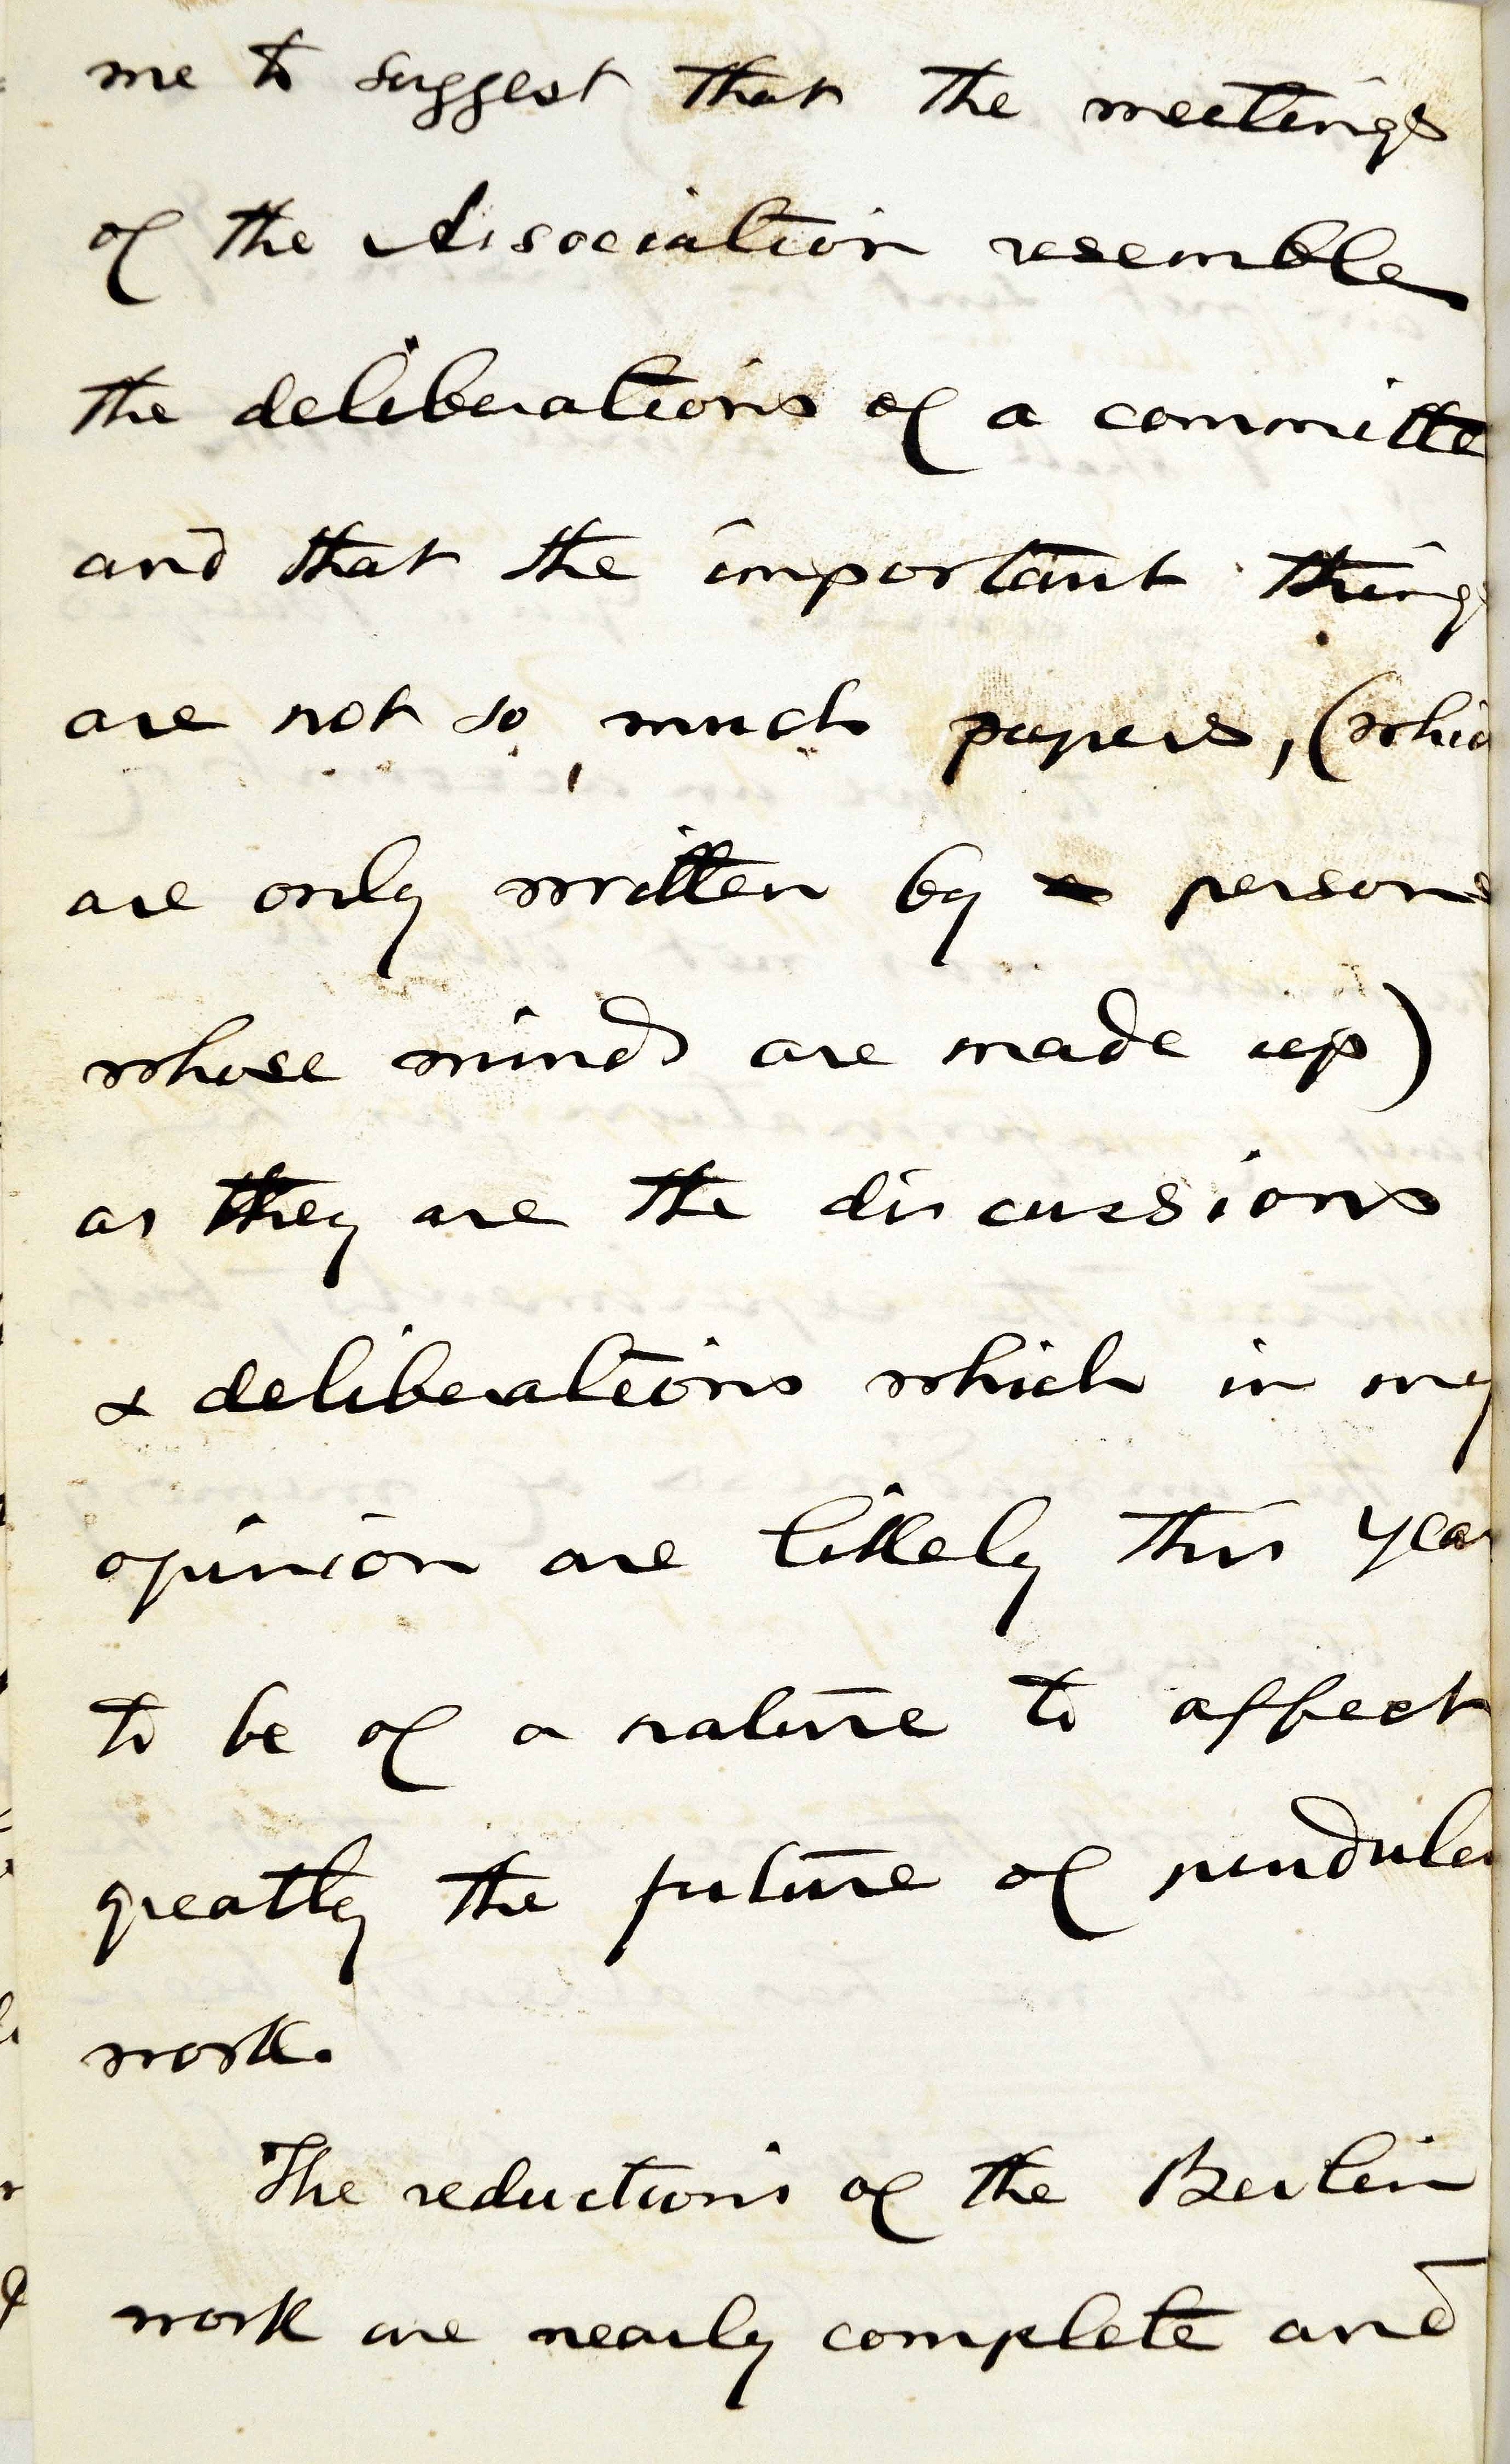 me to suggest that the meetings
of the Association resemble
the deliberations of a committe
and that the important things
are not so much papers, (whic
are only written by persons
whose minds are made up)
as they are the discussions
& deliberations which in my
opinion are likely this year
to be of a nature to affect
greatly the future of pendulu
work.
The reductions of the Berlin
work are nearly complete and